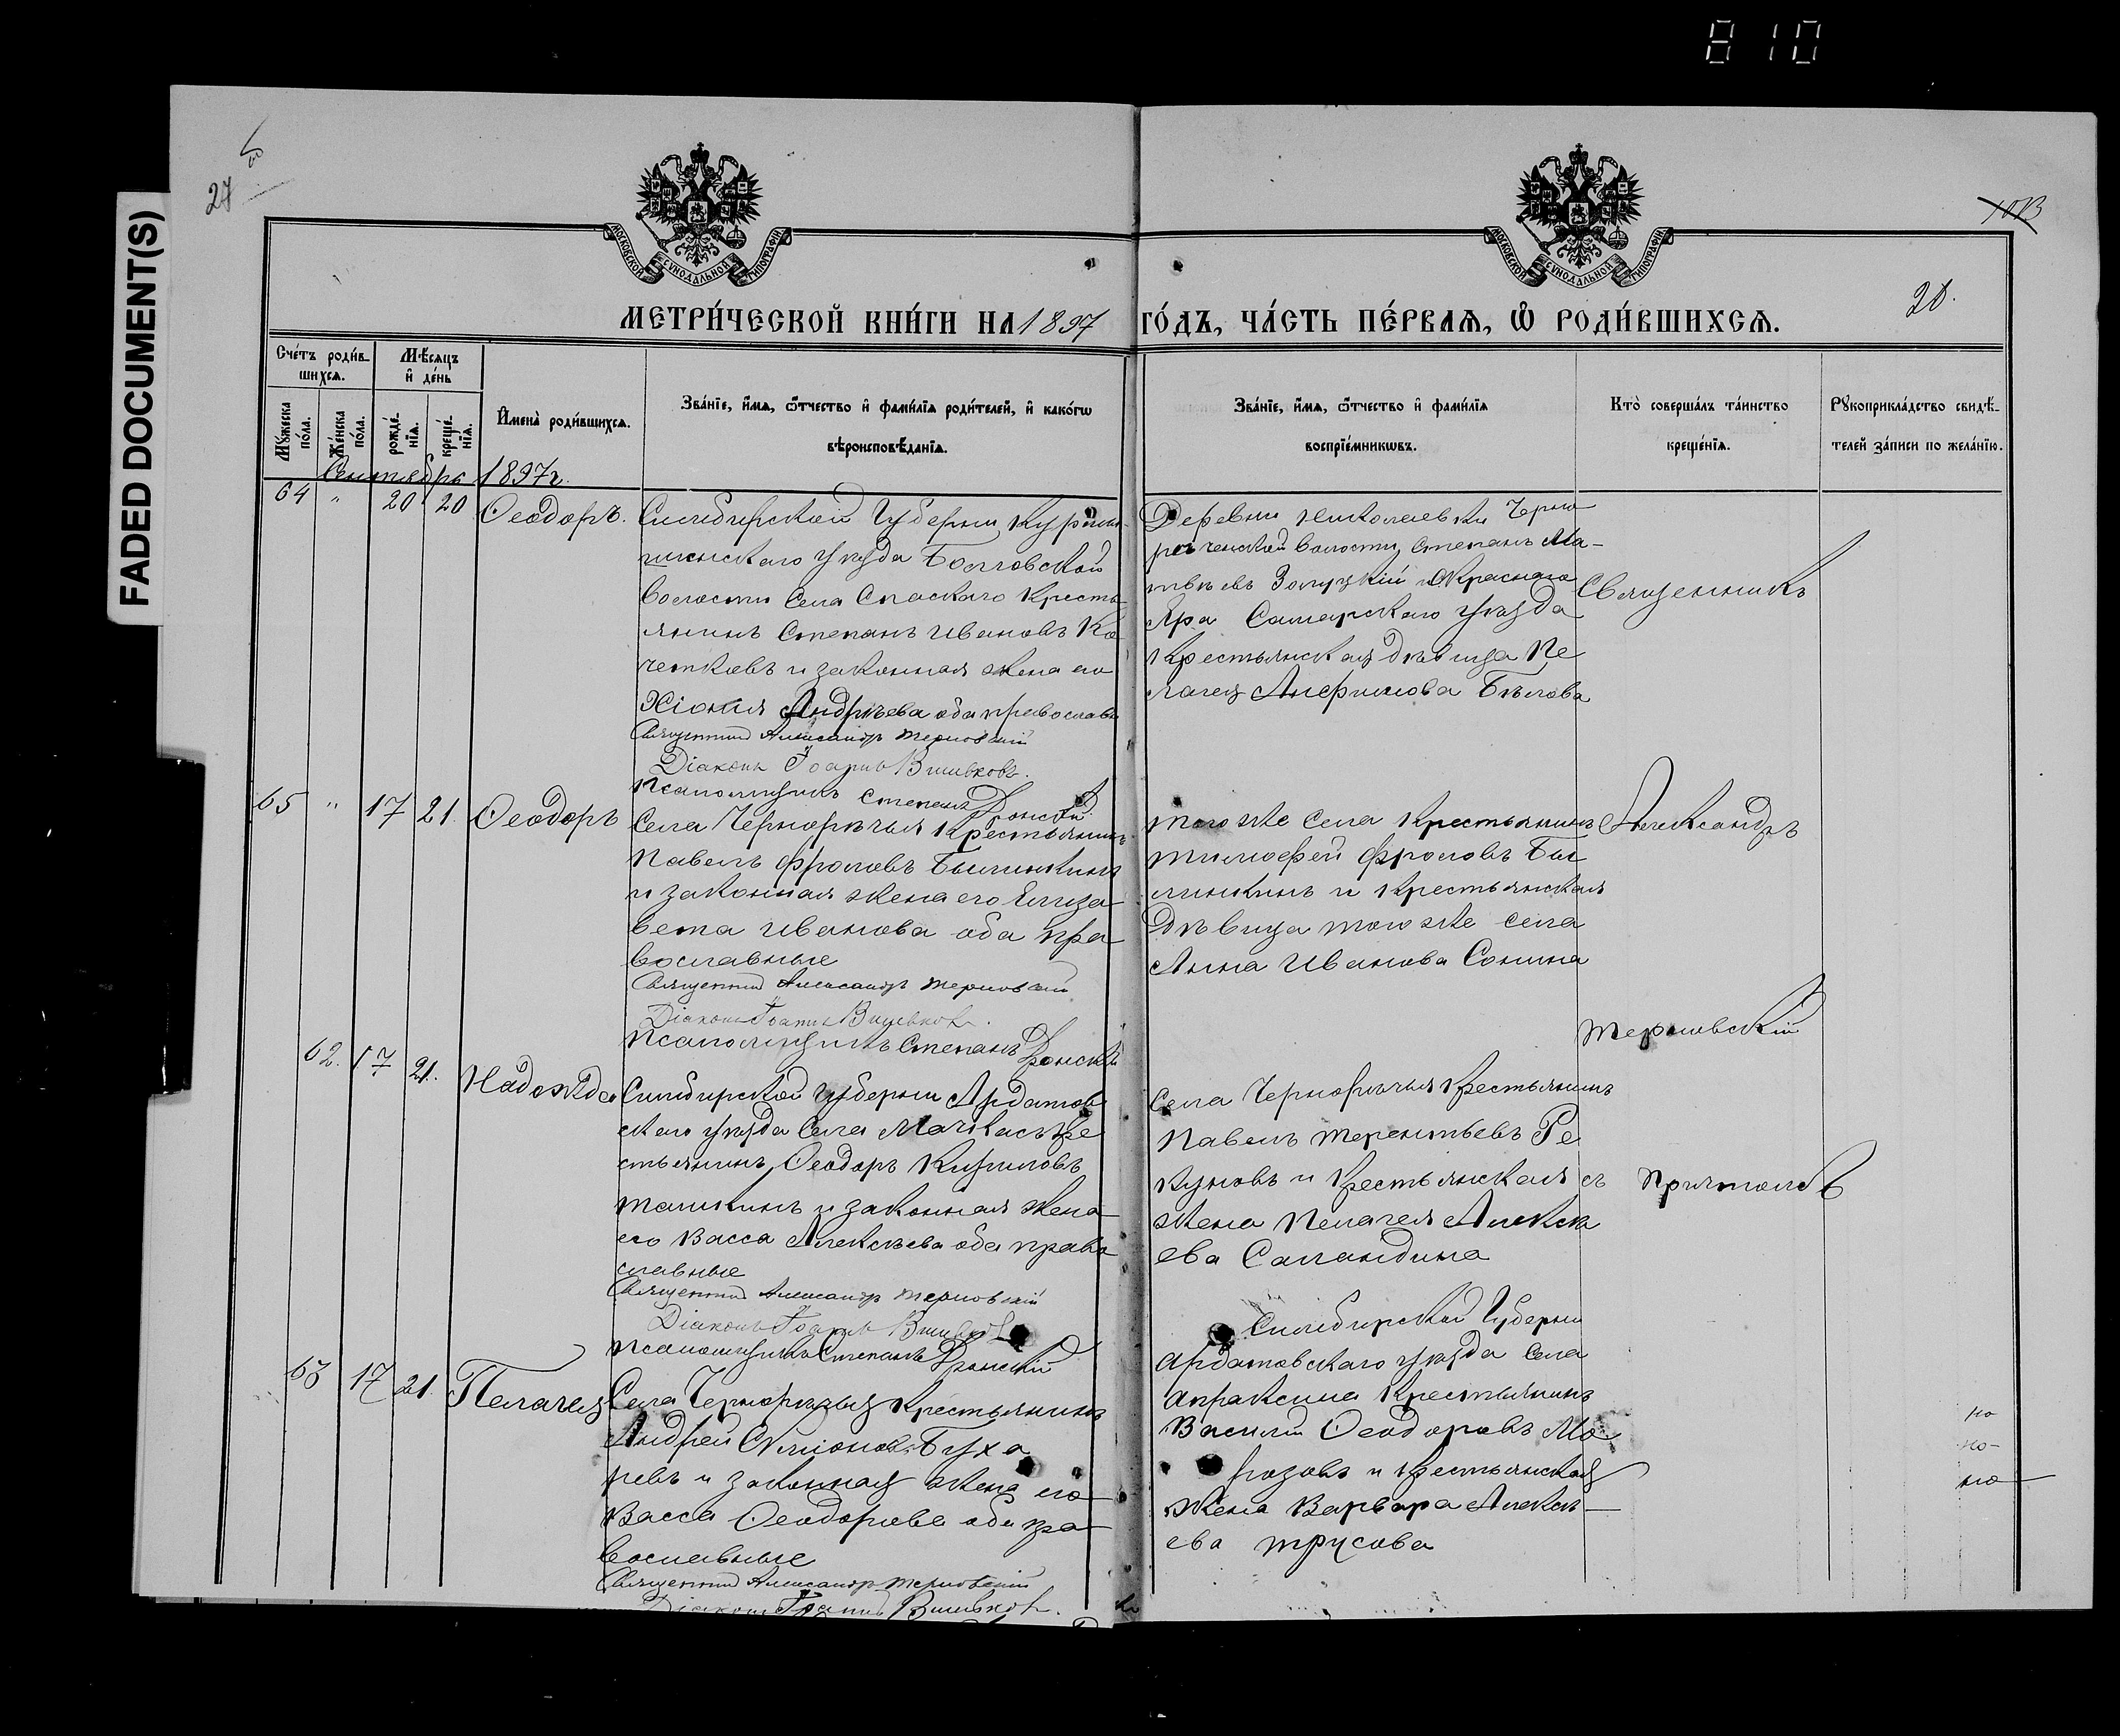 810
FADED DOCUMENT(S)
27
1013
20.
МОСКОВСКОЙ СѴНОДАЛЬНОЙ ТИПОГРАФІИ
МОСКОВСКОЙ СѴНОДАЛЬНОЙ ТИПОГРАФІИ
МЕТРИ́ЧЕСКОЙ КНИ́ГИ НА 1897 ГО́ДЪ, ЧА́СТЬ ПЕ́РВАѦ, Ѡ҆ РОДИ́ВШИХСѦ.
Сче́тъ роди́в-
шихсѧ.
Мꙋ́жеска по́ла.
Же́нска по́ла.
Мѣ́сѧцъ
и҆ де́нь
рожде́-
нїѧ.
креще́-
нїѧ.
И҆мена̀ роди́вшихсѧ.
Зва́нїе, и҆́мѧ, ѻ҆́тчество и҆ фамн́лїѧ роди́телей, и҆ како́гѡ
вѣроисповѣ́данїѧ.
Зва́нїе, и҆́мѧ, ѻ҆́тчество и҆ фами́лїѧ
воспрїе́мникѡвъ.
Кто̀ соверша́лъ та́инство
креще́нїѧ.
Рꙋкоприкла́дство свидѣ́-
телей за́писи по жела́нїю.
Сентябрь 1897 г.
64 " 20 20 Ѳеодоръ.
Симбирской Губерніи Курмы-
шскаго уѣзда
волости Села Спаскаго кресть-
янинъ Степанъ Ивановъ Ко
четковъ и законная жена его
Хіонія Андрѣева оба православн
Священникъ Александръ Терновскій
Діаконъ Іоаннъ Вишвковъ.
Псаломщикъ Степанъ Донской
Деревни Николаевки Черно
рѣченской волости Степанъ Ма-
твѣевъ и Краснаго
Яра Самарскаго уѣзда
Крестьянская дѣвица Пе
лагея Анфимова Бѣлова
Священникъ
65 " 17 21. Ѳеодоръ
Села Чернорѣчья Крестьянинъ
Павелъ Фроловъ Былинкинъ
и законная жена его Елиза
вета Иванова оба пра
вославные
Священникъ Александръ Терновскій
Діаконъ Іоаннъ Вишвковъ.
Псаломщикъ Степанъ Донской
того же села крестьянинъ
Тимофей Фроловъ Бы
линкинъ и крестьянская
дѣвица того же села
Анна Иванова Сонина
Александръ
Терновскій
62. 17 21. Надежда
Симбирской губерніи Ардатов
скаго уѣзда Села Мачкасъ Кре
стьянинъ Ѳеодоръ Кириловъ
Ташкинъ и законная жена
его Васса Алексѣева оба право
славные
Священникъ Александръ Терновскій
Діаконъ Іоаннъ Вишвковъ
Псаломщикъ Степанъ Донской
Села Чернорѣчья Крестьянинъ
Павелъ Терентьевъ Ре
куновъ и Крестьянская
жена Пелагея Алексѣ
ева Саландина
63 17 21. Пелагея
Села Чернорѣчья Крестьянинъ
Андрей Симіоновъ Буха
ревъ и законная жена его
Васса Ѳеодорова оба пра
вославные
Священникъ Александръ Терновскій
Діаконъ Іоаннъ Вишвковъ.
Симбирской Губерніи
Ардатовскаго уѣзда Села
Апраксина Крестьянинъ
Василій Ѳеодоровъ Мо
розовъ и крестьянская
жена Варвара Алексѣ-
ева Трусова